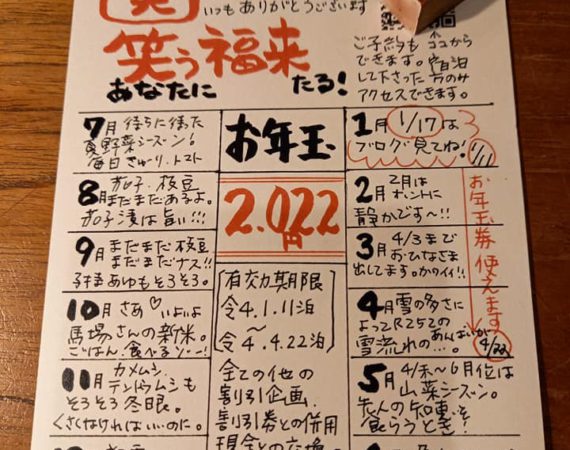 いつもありがとうございます
笑う福来
あなたに
たる!
ご予約も ココから
できます。宿泊
して下さった方のみ
アクセスできます。
7月 待ちに待った
夏野菜シーズン!
毎日きゅうり、トマト
8月 茄子・枝豆
まだまだあるよ。
茄子漬は旨い!!!
9月 まだまだ枝豆
まだまだナス!!
子持あゆもそろそろ。
10月 さあ♡いよいよ
馬場さんの新米。
ごはん、食べるゾー!
11月 カメムシ、
テントウムシも
そろそろ冬眠。
くさくなければいいのに。
お年玉
2.022
円
[有効期限]
令4.1.11泊
～
令4.4.22泊
全ての他の
割引企画
割引券との併用
1月 1/17は
ブログ見てね!
1/11
2月 2月は
ホントに
静かです～!!
3月 4/3まで
おひなさま
出してます。かワイイ!!
4月 雪の多さに
よってR252の
雪流れのあんばいが
…。
4/22
お年玉券使えます
5月 4/末～6月位は
山菜シーズン。
先人の知恵を
食らうとき!